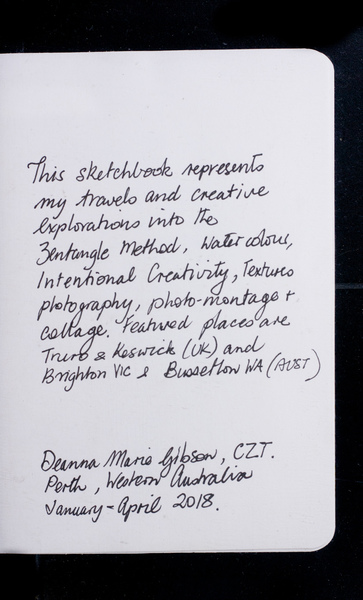 This sketchbook represents
my travels and creative
explorations into the
Zentangle Method, Watercolour,
Intentional Creativity, Textures
photography, photo-montage +
collage. Featured places are
Truro & Keswick (UK) and
Brighton VIC & Busselton WA (AUST)
Deanna Maria Gibson, CZT.
Perth, Western Australia
January - April 2018.